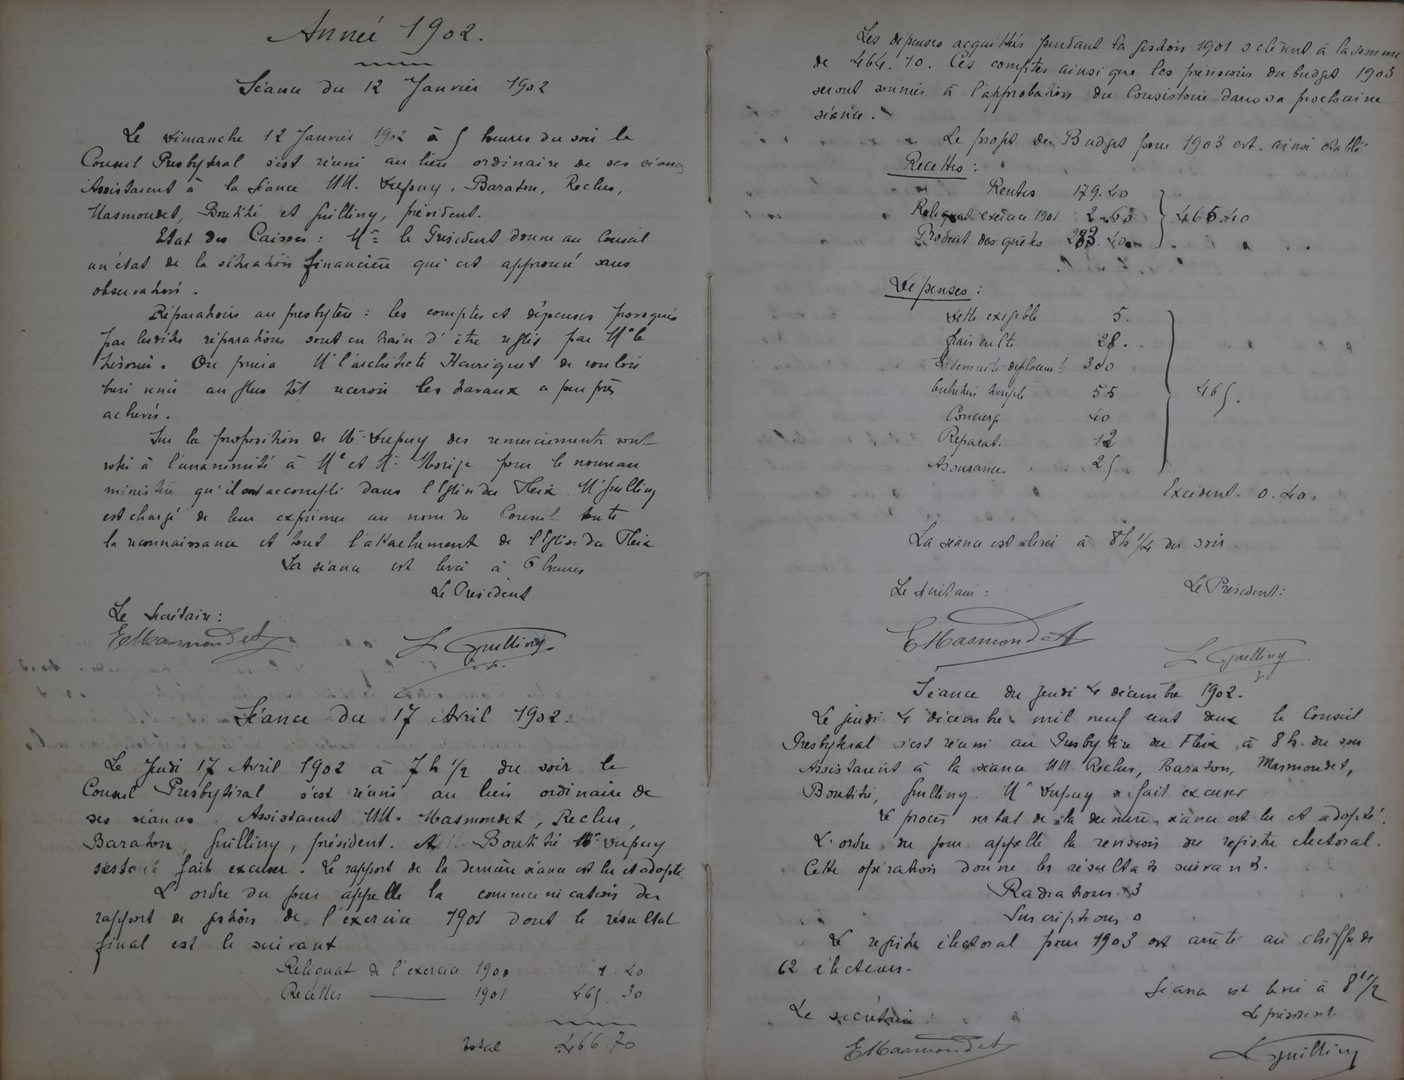 Année 1902.
Séance du 12 Janvier 1902
Le dimanche 12 Janvier 1902 à 5 heures du soir le
Conseil Presbytéral s'est réuni au lieu ordinaire de ses séances
Assistaient à la séance MM. Dupuy, Baraton, Reclus,
Masmondet, Boutitié et Guilliny, président.
Etat des Caisses : Mr le Président donne au Conseil
un état de la situation financière qui est approuvé sans
observation.
Réparations au presbytère : les comptes et dépenses provoqués
par lesdites réparations sont en train d'être réglés par Mr le
trésorier. On priera Mr l'architecte Henriquet de vouloir
bien venir au plus tôt recevoir les travaux a peu près
achevés.
Sur la proposition de Mr Dupuy des remerciements sont
votés à l'unanimité à Mr et Me pour le nouveau
ministère qu'il ont accompli dans l'Eglise du Fleix. Mr Guilliny
est chargé de leur exprimer au nom du Conseil toute
la reconnaissance et tout l'attachement de l'Eglise du Fleix
La séance est levée à 6 heures
Le Président
Le Secrétaire :
EMasmondet
L Guilliny
Séance du 17 Avril 1902.
Le Jeudi 17 Avril 1902 à 7h 1/2 du soir le
Conseil Presbytéral s'est réuni au lieu ordinaire de
ses séances. Assistaient MM. Masmondet, Reclus,
Baraton, Guilliny, président. Boutitié Mr Dupuy
se sont fait excuser. Le rapport de la dernière séance est lu et adopté
L'ordre du jour appelle la communication du
rapport de gestion de l'exercice 1901 dont le résultat
final est le suivant
Reliquat de l'exercice 1900 1.40
Recettes 1901 465.30
total 466.70
Les dépenses acquittées pendant la gestion 1901 s'élèvent à la somme
de 464.10. Ces comptes ainsi que les prévisions du budget 1903
seront soumis à l'approbation du Consistoire dans sa prochaine
séance.
Le projet de Budget pour 1903 est ainsi établi
Recettes :
Rentes 179.40
Reliquat exercice 1901 2.60 465.40
Produit des quêtes 283.40
Dépenses :
Dette exigible 5.
frais culte 28.
Indemnité déplacemt 300
Entretien temple 55 465.
Concierge 40
Réparat. 12
Assurances 25
Excédent. 0.40.
La séance est levée à 8h 1/4 du soir
Le Secrétaire : Le Président :
EMasmondet
L Guilliny
Séance du jeudi 4 décembre 1902.
Le jeudi 4 décembre mil neuf cent deux le Conseil
Presbytéral s'est réuni au Presbytère du Fleix à 8 h. du soir
Assistaient à la séance MM. Reclus, Baraton, Masmondet,
Boutitié, Guilliny. Mr Dupuy se fait excuser
Le procès verbal de la dernière séance est lu et adopté.
L'ordre du jour appelle la revision du registre électoral.
Cette opération donne les résultats suivants.
Radiations 3
Inscriptions 0
Le registre électoral pour 1903 est arrêté au chiffre de
62 électeurs.
Séance est levée à 8h 1/2
Le président
Le secrétaire
EMasmondet
L Guilliny